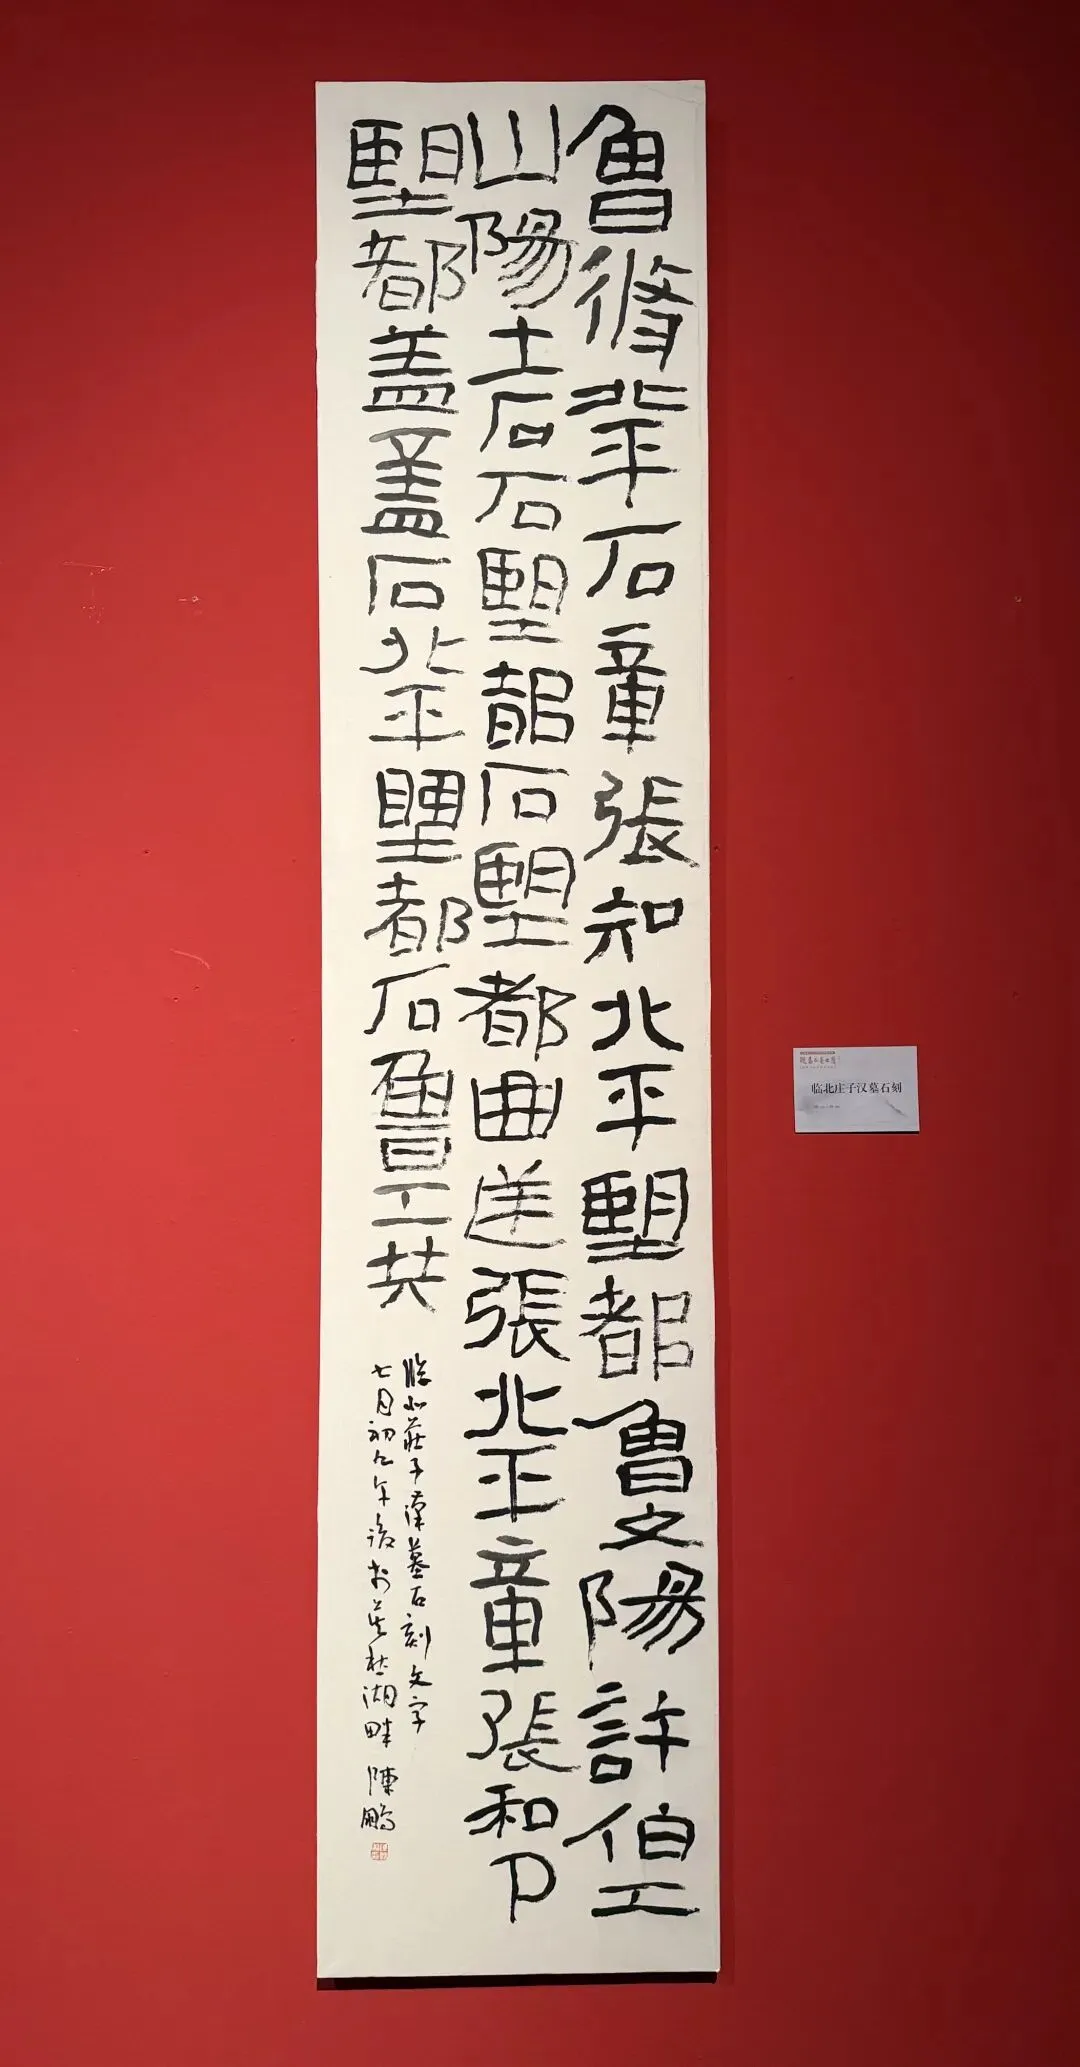 魯脩北平石章張知北平朢都魯文陽許伯工
山陽土石石朢都石朢都曲逆張北平章張和卩
朢都蓋蓋石北平朢都石魯工共
臨北莊子漢墓石刻文字
七月初九午後於湖畔 陳鵬
临北庄子汉墓石刻